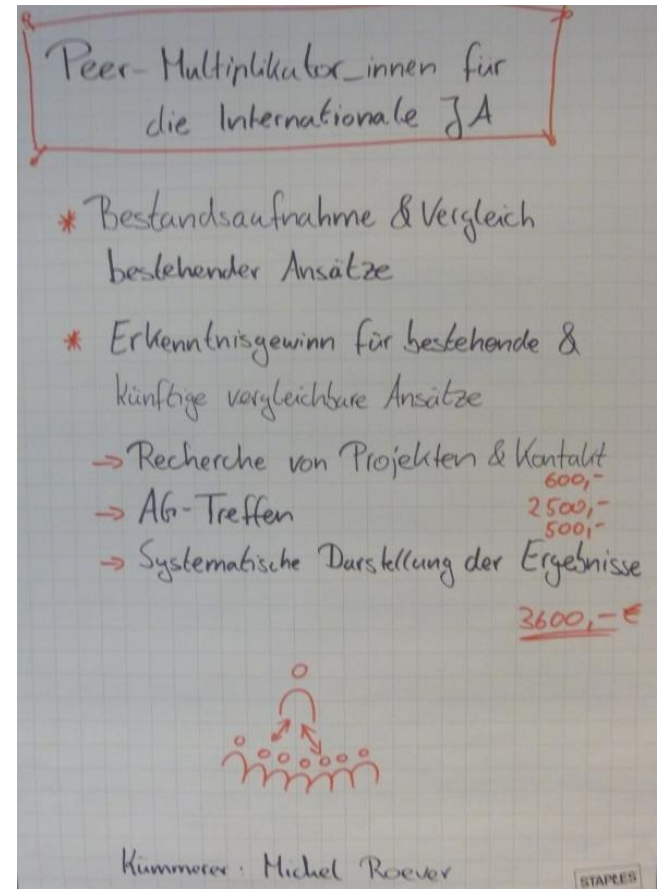 Peer-Multiplikator_innen für
die Internationale JA
* Bestandsaufnahme & Vergleich
bestehender Ansätze
* Erkenntnisgewinn für bestehende &
künftige vergleichbare Ansätze
→ Recherche von Projekten & Kontakt
600,-
→ AG-Treffen 2500,-
500,-
→ Systematische Darstellung der Ergebnisse
3600,-€
Kümmerer: Michel Roever
STAPLES